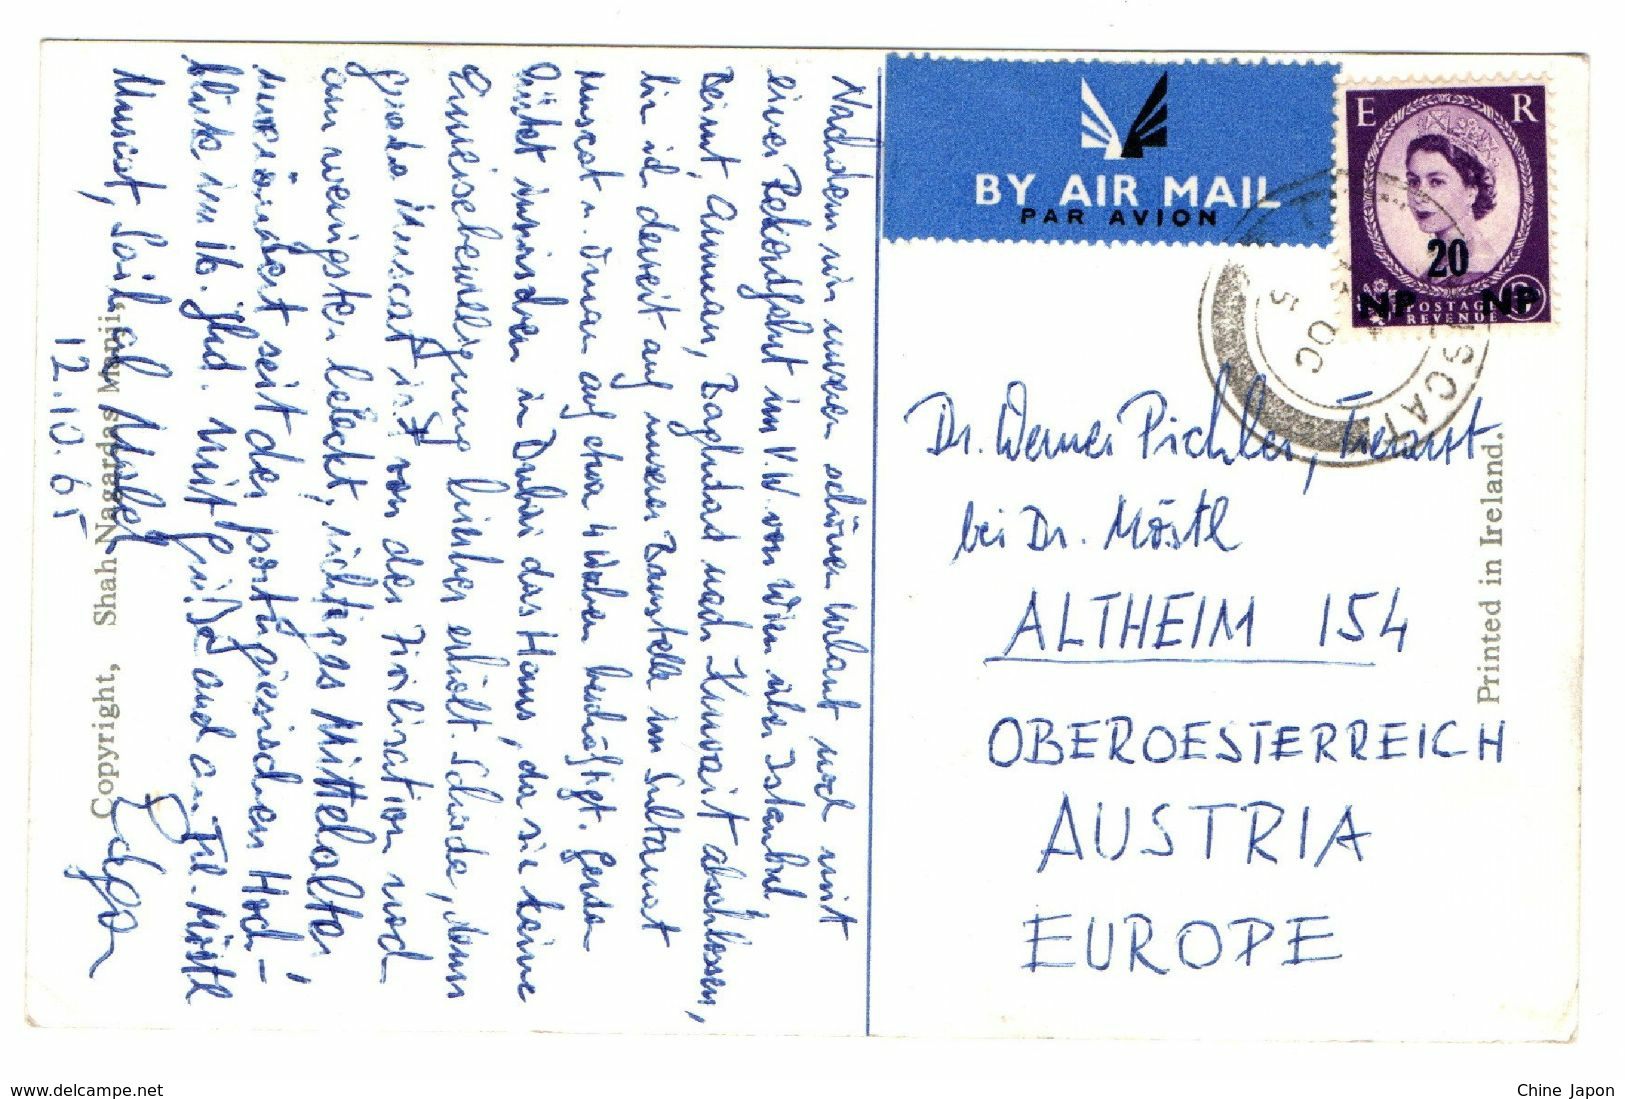 Muscat, Said al Mabet
12.10.65
Nachdem wir unseren schönen Urlaub noch mit
einer Rekordfahrt im V.W. von Wien über Istanbul,
Beirut, Amman, Baghdad nach Kuwait abschlossen,
bin ich derzeit auf unserer Baustelle im Sultanat
Muscat u. Oman auf etwa 4 Wochen beschäftigt. Gerda
hütet inzwischen in Dubai das Haus, da sie keine
Einreisebewilligung hierher erhält. Schade, denn
gerade Muscat ist von der Zivilisation noch
am wenigsten beleckt, richtiges Mittelalter,
unverändert seit der portugiesischen Hoch-
blüte im 16. Jhd. Mit Grüßen auch an Fr.
Möstl
Edgar
Copyright, Shah Nagardas Manji,
BY AIR MAIL
PAR AVION
E R
20
NP NP
POSTAGE
REVENUE
3D
MUSCAT
OC
5
Dr. Werner Pichler, Tierarzt
bei Dr. Möstl
ALTHEIM 154
OBEROESTERREICH
AUSTRIA
EUROPE
Printed in Ireland.
www.delcampe.net
Chine Japon